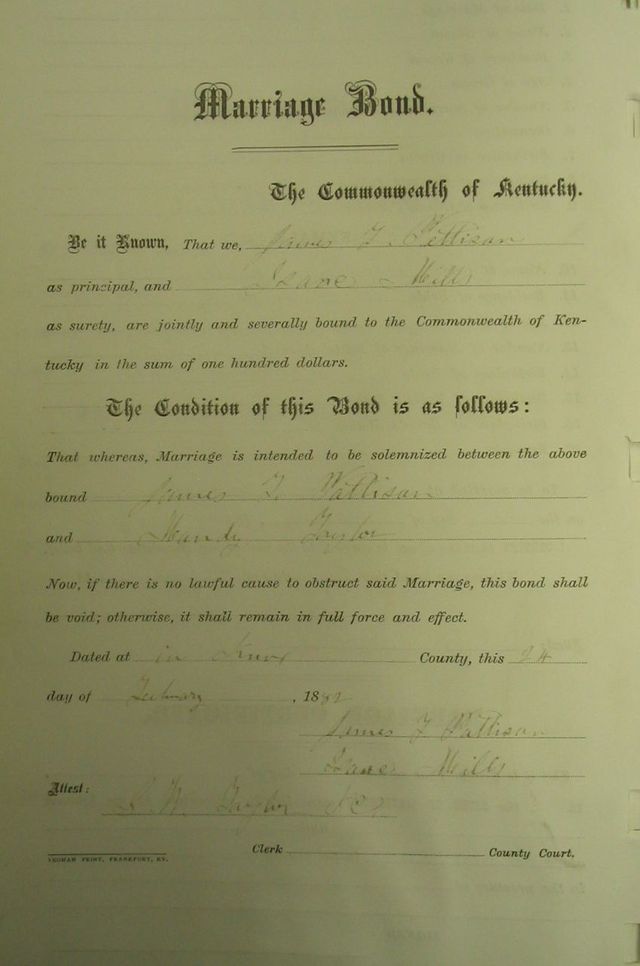 Marriage Bond.
The Commonwealth of Kentucky.
Be it Known, That we, James F. Pattison
as principal, and Isaac Mills
as surety, are jointly and severally bound to the Commonwealth of Ken-
tucky in the sum of one hundred dollars.
The Condition of this Bond is as follows:
That whereas, Marriage is intended to be solemnized between the above
bound James F. Pattison
and Mandy Taylor
Now, if there is no lawful cause to obstruct said Marriage, this bond shall
be void; otherwise, it shall remain in full force and effect.
Dated at in Knox County, this 24
day of February, 1882
James F Pattison
Isaac Mills
Attest:
W. Taylor
Clerk County Court.
YEOMAN PRINT, FRANKFORT, KY.